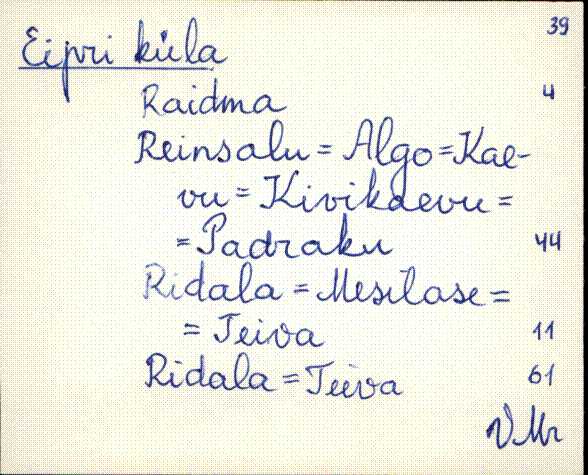 39
Eipri küla
Raidma 4
Reinsalu = Algo = Kae-
vu = Kivikaevu =
= Padraku 44
Ridala = Mesilase =
= Teiva 11
Ridala = Teeva 61
VMr